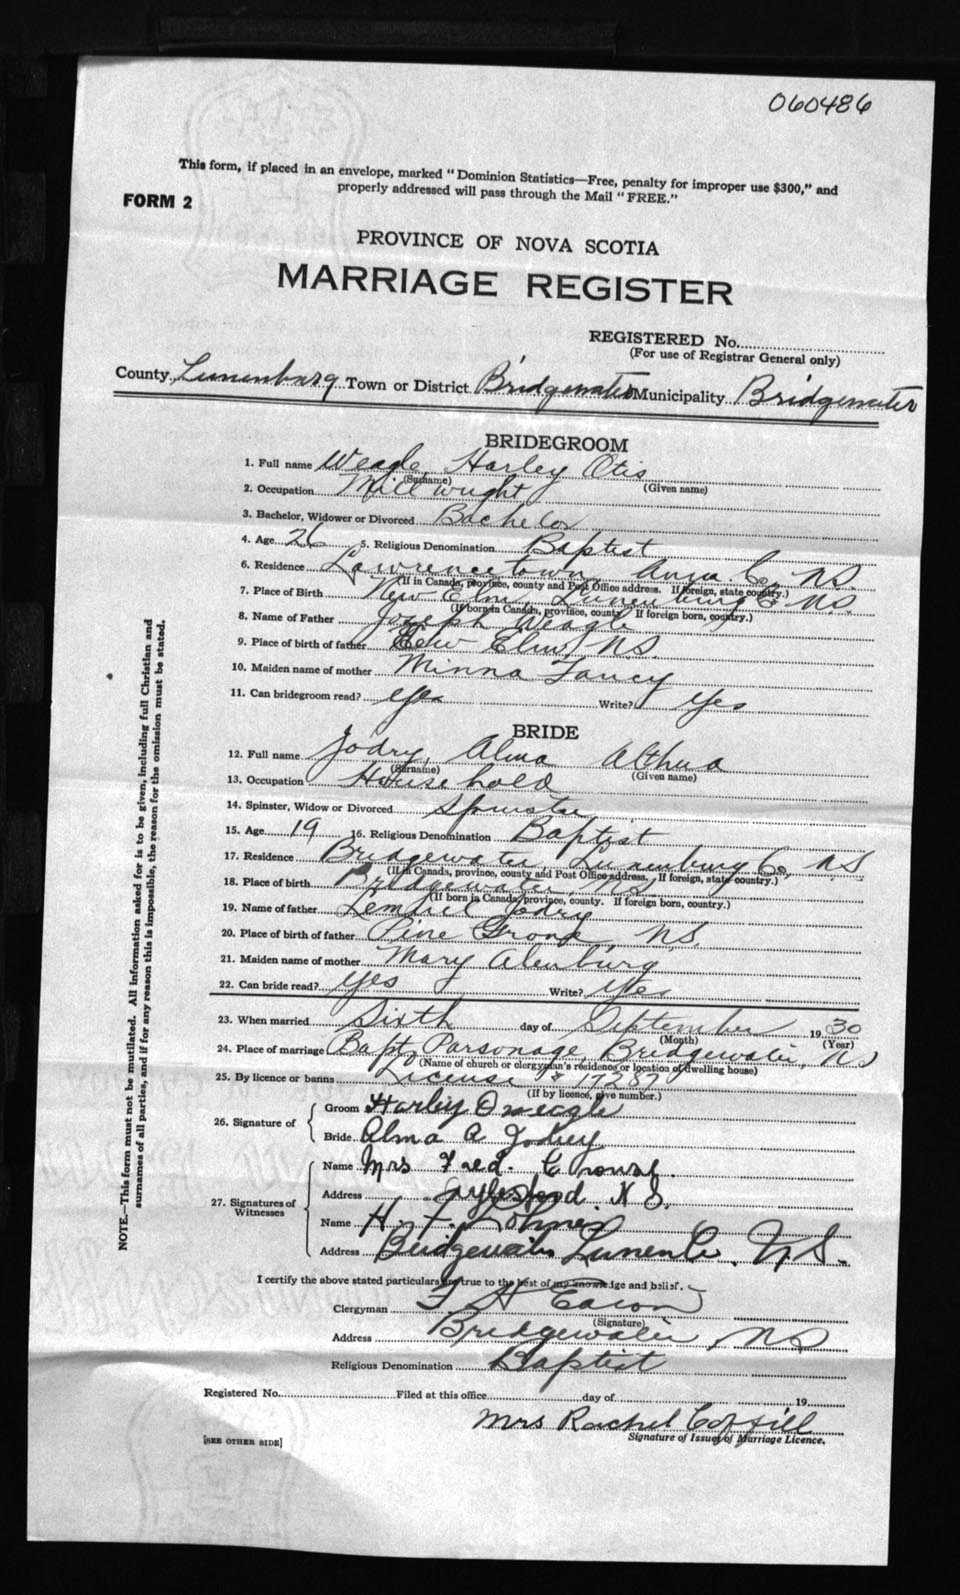 060486
This form, if placed in an envelope, marked "Dominion Statistics—Free, penalty for improper use $300," and
properly addressed will pass through the Mail "FREE."
FORM 2
PROVINCE OF NOVA SCOTIA
MARRIAGE REGISTER
REGISTERED No.
(For use of Registrar General only)
County Lunenburg Town or District Bridgewater Municipality Bridgewater
BRIDEGROOM
1. Full name Weagle, Harley Otis
(Surname) (Given name)
2. Occupation Millwright
3. Bachelor, Widower or Divorced Bachelor
4. Age 26 5. Religious Denomination Baptist
6. Residence Lawrencetown, Anna. Co, NS
(If in Canada, province, county and Post Office address. If foreign, state country.)
7. Place of Birth New Elm, Lunenburg Co NS
(If born in Canada, province, county. If foreign born, country.)
8. Name of Father Joseph Weagle
9. Place of birth of father New Elm, NS.
10. Maiden name of mother Minna Fancy
11. Can bridegroom read? yes Write? yes
BRIDE
12. Full name Jodry, Alma Althea
(Surname) (Given name)
13. Occupation Household
14. Spinster, Widow or Divorced Spinster
15. Age 19 16. Religious Denomination Baptist
17. Residence Bridgewater, Lunenburg Co, NS
(If in Canada, province, county and Post Office address. If foreign, state country.)
18. Place of birth Bridgewater, NS.
(If born in Canada, province, county. If foreign born, country.)
19. Name of father Lemuel Jodry
20. Place of birth of father Pine Grove NS.
21. Maiden name of mother Mary Alenburg
22. Can bride read? yes Write? yes
23. When married Sixth day of September 1930
(Month) (Year)
24. Place of marriage Bapt. Parsonage, Bridgewater, NS
(Name of church or clergyman's residence or location of dwelling house)
25. By licence or banns License # 17287
(If by licence, give number.)
26. Signature of
Groom Harley O weagle
Bride Alma A Jodrey
27. Signatures of Witnesses
Name Mrs Fred. Crouse.
Address Aylesford N S.
Name H. F.
Address Bridgewater Lunen Co. N.S.
I certify the above stated particulars are true to the best of my knowledge and belief.
Clergyman F H Eaton
(Signature)
Address Bridgewater, NS
Religious Denomination Baptist
Registered No. Filed at this office day of 19
Mrs Rachel Coffill
[SEE OTHER SIDE] Signature of Issuer of Marriage Licence.
NOTE.—This form must not be mutilated. All information asked for is to be given, including full Christian and
surnames of all parties, and if for any reason this is impossible, the reason for the omission must be stated.